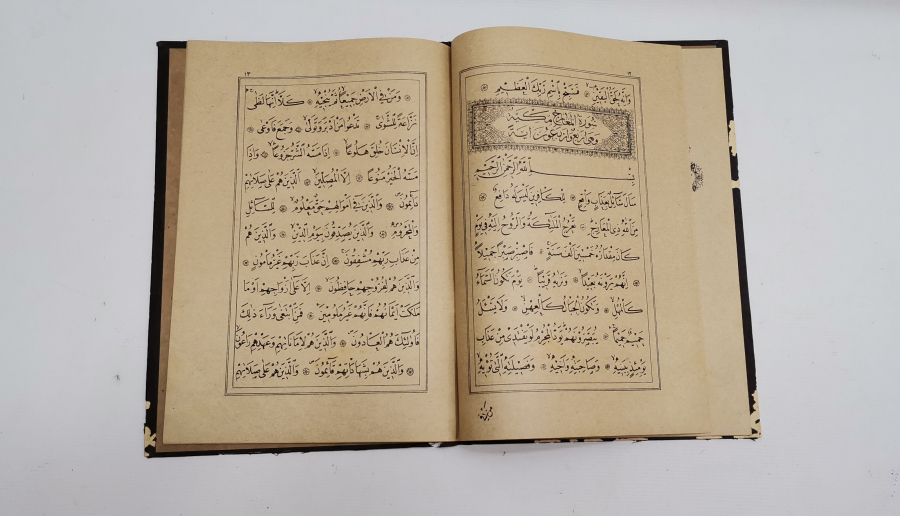 ١٢
وَاِنَّهُ لَحَقُّ الْيَقِينِ ۞ فَسَبِّحْ بِاسْمِ رَبِّكَ الْعَظِيمِ ۞
سورة المعارج مكية
وهى اربع واربعون اية
بِسْمِ اللهِ الرَّحْمٰنِ الرَّحِيمِ
سَاَلَ سَائِلٌ بِعَذَابٍ وَاقِعٍ ۞ لِلْكَافِرِينَ لَيْسَ لَهُ دَافِعٌ ۞
مِنَ اللهِ ذِى الْمَعَارِجِ ۞ تَعْرُجُ الْمَلٰئِكَةُ وَالرُّوحُ اِلَيْهِ فِى يَوْمٍ
كَانَ مِقْدَارُهُ خَمْسِينَ اَلْفَ سَنَةٍ ۞ فَاصْبِرْ صَبْرًا جَمِيلًا
۞ اِنَّهُمْ يَرَوْنَهُ بَعِيدًا ۞ وَنَرٰيهُ قَرِيبًا ۞ يَوْمَ تَكُونُ السَّمَاءُ
كَالْمُهْلِ ۞ وَتَكُونُ الْجِبَالُ كَالْعِهْنِ ۞ وَلَا يَسْئَلُ
حَمِيمٌ حَمِيمًا ۞ يُبَصَّرُونَهُمْ يَوَدُّ الْمُجْرِمُ لَوْ يَفْتَدِى مِنْ عَذَابِ
يَوْمِئِذٍ بِبَنِيهِ ۞ وَصَاحِبَتِهِ وَاَخِيهِ ۞ وَفَصِيلَتِهِ الَّتِى تُؤْيهِ ۞
ومن فى
١٣
۞ وَمَنْ فِى الْاَرْضِ جَمِيعًا ثُمَّ يُنْجِيهِ ۞ كَلَّا اِنَّهَا لَظٰى
نَزَّاعَةً لِلشَّوٰى ۞ تَدْعُوا مَنْ اَدْبَرَ وَتَوَلّٰى ۞ وَجَمَعَ فَاَوْعٰى ۞
اِنَّ الْاِنْسَانَ خُلِقَ هَلُوعًا ۞ اِذَا مَسَّهُ الشَّرُّ جَزُوعًا ۞ وَاِذَا
مَسَّهُ الْخَيْرُ مَنُوعًا ۞ اِلَّا الْمُصَلِّينَ ۞ اَلَّذِينَ هُمْ عَلٰى صَلَاتِهِمْ
دَائِمُونَ ۞ وَالَّذِينَ فِى اَمْوَالِهِمْ حَقٌّ مَعْلُومٌ ۞ لِلسَّائِلِ
وَالْمَحْرُومِ ۞ وَالَّذِينَ يُصَدِّقُونَ بِيَوْمِ الدِّينِ ۞ وَالَّذِينَ هُمْ
مِنْ عَذَابِ رَبِّهِمْ مُشْفِقُونَ ۞ اِنَّ عَذَابَ رَبِّهِمْ غَيْرُ مَأْمُونٍ ۞
وَالَّذِينَ هُمْ لِفُرُوجِهِمْ حَافِظُونَ ۞ اِلَّا عَلٰى اَزْوَاجِهِمْ اَوْ مَا
مَلَكَتْ اَيْمَانُهُمْ فَاِنَّهُمْ غَيْرُ مَلُومِينَ ۞ فَمَنِ ابْتَغٰى وَرَاءَ ذٰلِكَ
فَاُولٰئِكَ هُمُ الْعَادُونَ ۞ وَالَّذِينَ هُمْ لِاَمَانَاتِهِمْ وَعَهْدِهِمْ رَاعُونَ
۞ وَالَّذِينَ هُمْ بِشَهَادَاتِهِمْ قَائِمُونَ ۞ وَالَّذِينَ هُمْ عَلٰى صَلَاتِهِمْ